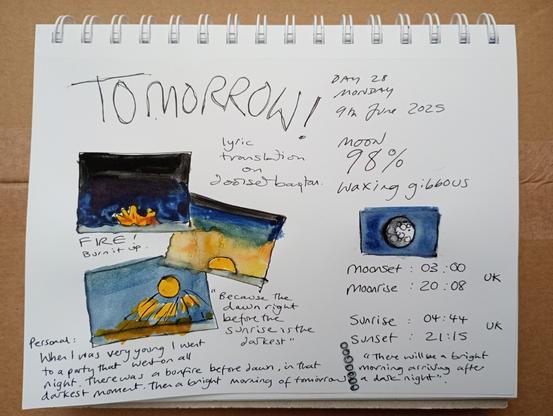 TOMORROW!
DAY 28
MONDAY
9th June 2025
MOON
98%
waxing gibbous
lyric
translation
on
FIRE!
Burn it up.
"Because the
dawn right
before the
sunrise is the
darkest"
Moonset : 03:00
Moonrise : 20:08
UK
Sunrise : 04:44
Sunset : 21:15
UK
"There will be a bright
morning arriving after
a dark night".
Personal:
When I was very young I went
to a party that went on all
night. There was a bonfire before dawn, in that
darkest moment. Then a bright morning of tomorrow